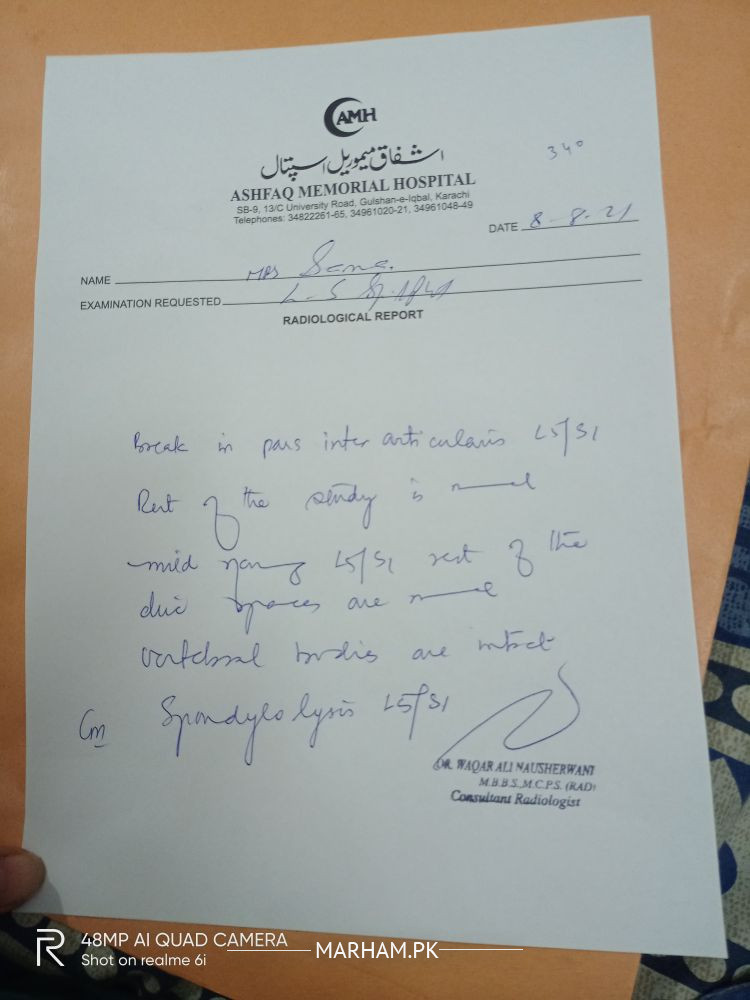 AMH
اشفاق میموریل اسپتال
ASHFAQ MEMORIAL HOSPITAL
SB-9, 13/C University Road, Gulshan-e-Iqbal, Karachi
Telephones: 34822261-65, 34961020-21, 34961048-49
340
DATE 8-8-21
NAME Mrs Sana.
EXAMINATION REQUESTED L-S
RADIOLOGICAL REPORT
Break in pars inter articularis L5/S1
Rest of the study is normal
mild L5/S1 rest of the
disc spaces are normal
vertebral bodies are intact
Spondylolysis L5/S1
DR. WAQAR ALI NAUSHERWANI
M.B.B.S., M.C.P.S. (RAD)
Consultant Radiologist
48MP AI QUAD CAMERA
Shot on realme 6i
MARHAM.PK